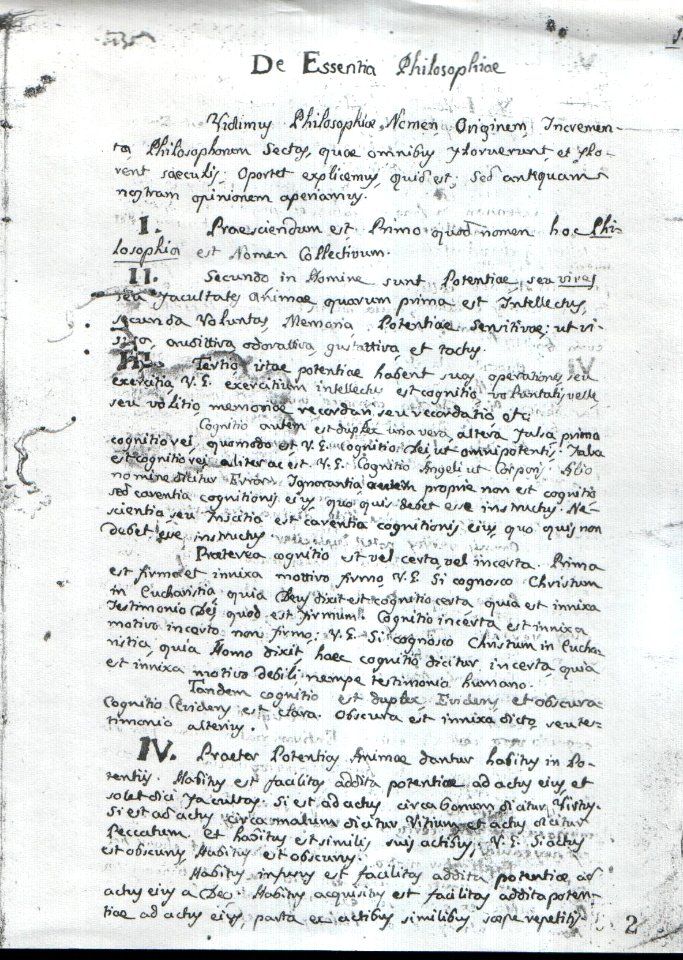 De Essentia Philosophiae
Vidimus Philosophiae Nomen Originem, Incremen-
ta Philosophorum Sectas, quae omnibus floruerunt, et flo-
rent saeculis; Oportet explicemus, quid est; Sed antiquam
nostram opinionem aperiamus.
I. Praesciendum est Primo quod nomen hoc Phi-
losophia est Nomen Collectivum.
II. Secundo in Homine sunt Potentiae, seu vires
seu facultates animae, quarum prima est Intellectus,
secunda Voluntas, Memoria, Potentiae Sensitivae; ut vi-
siva, auditiva, odorativa, gustativa, et tactus.
III. Tertio istae potentiae habent suas operationes, seu
exercitia V.G. exercitium intellectus est cognitio, voluntatis velle
seu volitio memoriae recordari, seu recordatio, etc.
Cognitio autem est duplex una vera, altera falsa, prima
cognitio rei, quomodo est V.G. cognitio Dei ut omnipotentis. Falsa
est cognitio rei aliter ac est. V.G. Cognitio Angeli ut Corporis. Alio
nomine dicitur Error. Ignorantia autem proprie non est cognitio
sed carentia cognitionis eius, quo quis debet esse instructus. Ne-
scientia seu Inscitia est carentia cognitionis eius, quo quis non
debet esse instructus.
Praeterea cognitio est vel certa vel incerta. Prima
est firma et innixa motivo firmo, V.G. Si cognosco Christum
in Eucharistia quia Deus dixit est cognitio certa quia est innixa
Testimonio Dei, quod est firmum. Cognitio incerta est innixa
motivo incerto non firmo; V.G. Si cognosco Christum in Eucha
ristia, quia Homo dixit haec cognitio dicitur incerta, quia
est innixa motivo debili, nempe testimonio humano.
Tandem cognitio est duplex Evidens, et obscura
Cognitio Evidens est clara. Obscura est innixa dicto, seu tes-
timonio alterius.
IV. Praeter Potentias Animae dantur habitus in Po-
tentiis. Habitus est facilitas addita potentiae ad actus eius, et
solet dici Facultas. Si est ad actus circa bonum dicitur Virtus.
Si est ad actus circa malum dicitur Vitium et actus dicitur
Peccatum. et habitus est similis suis actibus, V.G. Si actus
est obscurus, Habitus est obscurus.
Habitus infusus est facilitas addita potentiae ad
actus eius a Deo. Habitus acquisitus est facilitas addita poten-
tiae ad actus eius, parta ex actibus similibus saepe repetitis
2